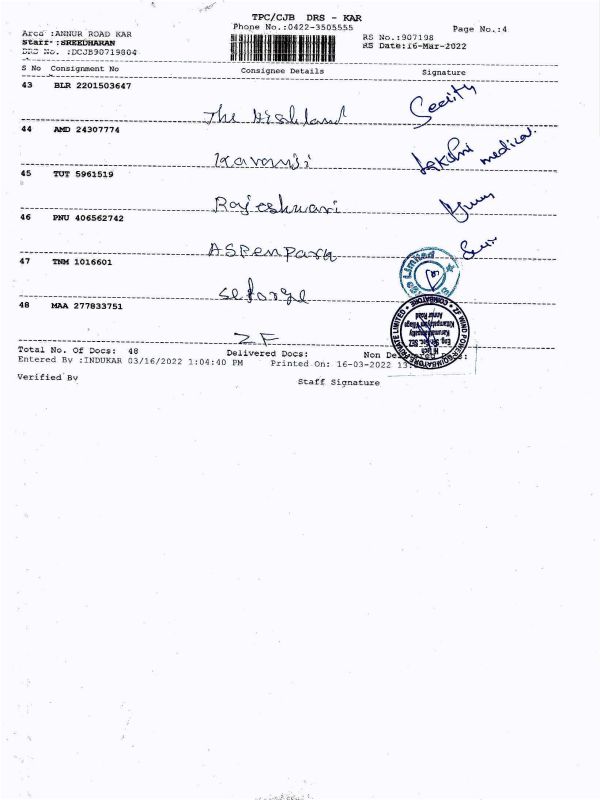 TPC/CJB DRS - KAR
Phone No.:0422-3505555
Page No.:4
Area :ANNUR ROAD KAR
RS No.:907198
Staff :SREEDHARAN
RS Date:16-Mar-2022
DRS No. :DCJB90719804
S No Consignment No Consignee Details Signature
43 BLR 2201503647
The Highland Secity
44 AMD 24307774
Karamsi Lakshmi medical.
45 TUT 5961519
Rajeshwari
46 PNU 406562742
ASPenpark
47 TNM 1016601
seforge
Limited
48 MAA 277833751
ZF
ZF WIND POWER COIMBATORE PRIVATE LIMITED COIMBATORE
Annur Road
Total No. Of Docs: 48 Delivered Docs: Non
Entered By :INDUKAR 03/16/2022 1:04:40 PM Printed On: 16-03-2022
Verified By Staff Signature